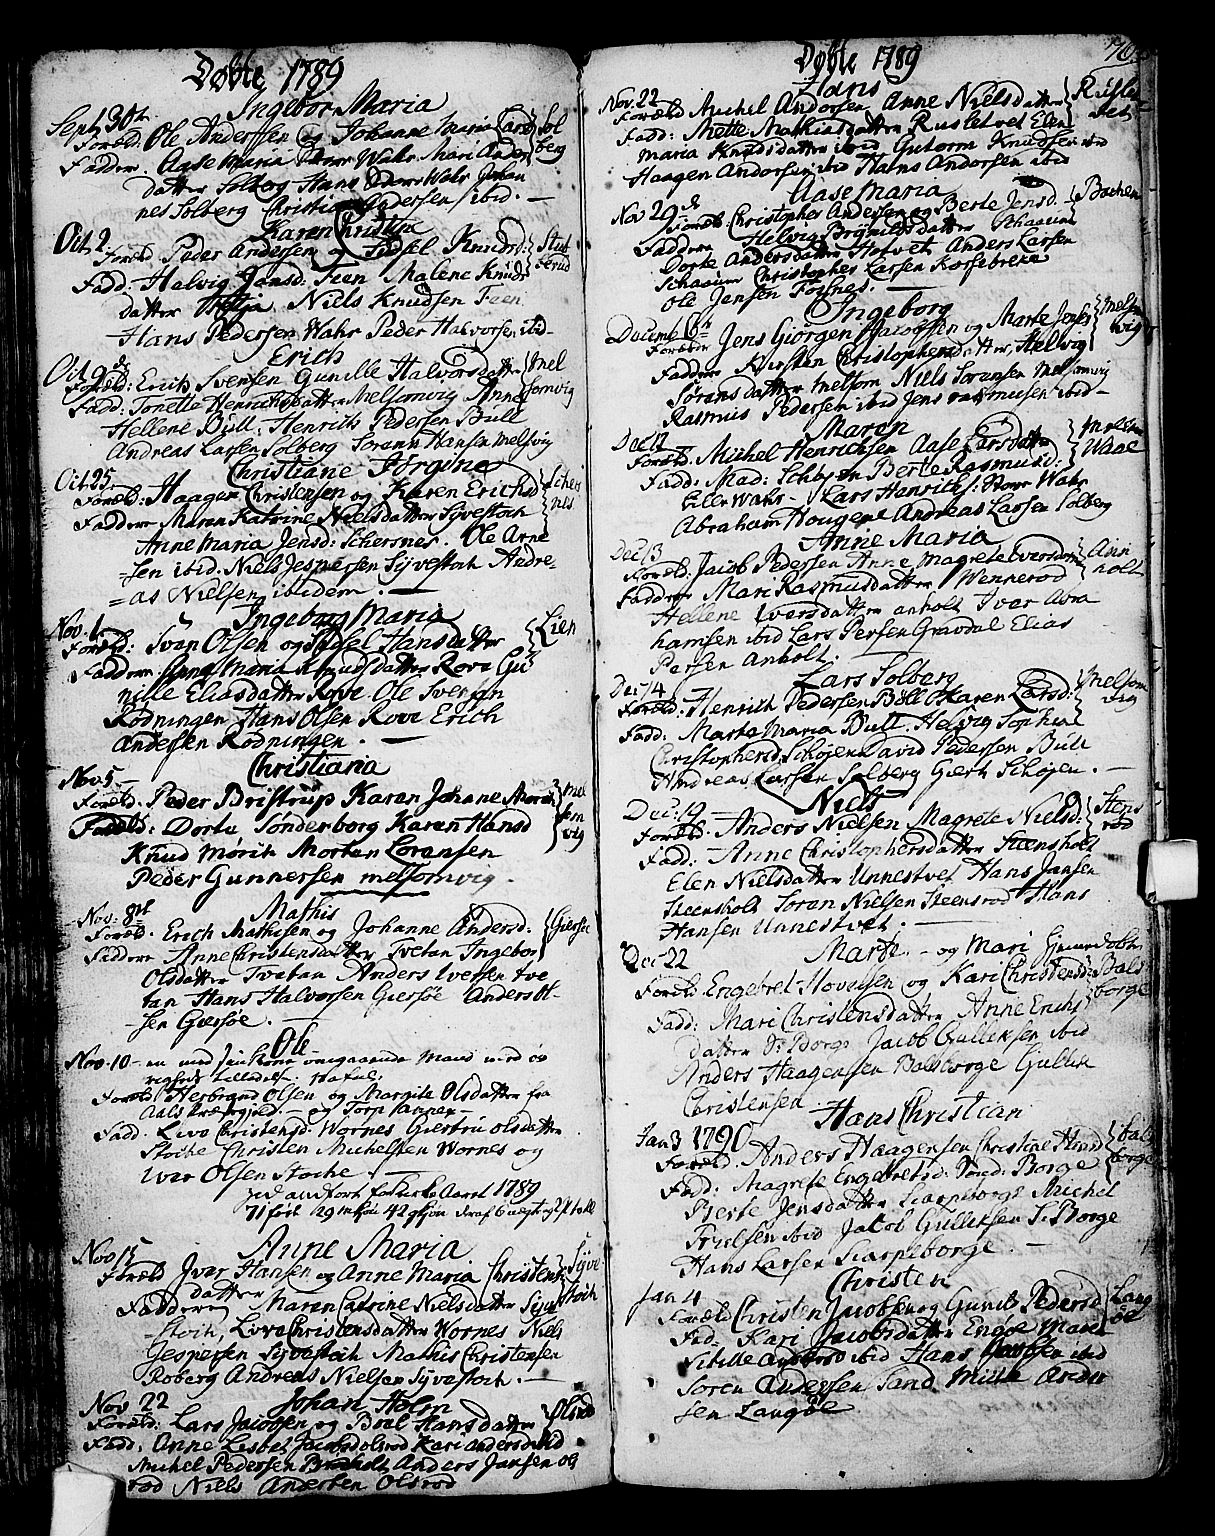 Døbte 1789
Ingebor Maria
Sept 30t. Foræld: Ole Anderssen og Johanne Maria Lars Sol
Faddere Aase Maria Wahr Mari Anders berg
datter Solberg Hans Wahr Johan
nes Solberg Christian Andersen ibid. —
Karen Christine
Oct 2 Foræld Peder Andersen og Sidsel Knudsd:
Fadd: Helvig Jansd: Feen Malene Knuds
datter Niels Knudsen Feen
Hans Pedersen Wahr Peder Halvorsen ibid-
Erich
Oct 9 Foræld: Erich Svensen Gunille Halvorsdatter Mel
Fadd: Tonette Henrichsdatter Melsomvig Anne somvig
Hellene Bull. Henrich Pedersen Bull
Andreas Larsen Solberg Sørann Hansen Melsvig
Christiane Jørgine
Oct 25. Foræld: Haagen Christensen og Karen Erichsd Schers
Faddere Maren Katrine Nielsdatter Syvestoch nes
Anne Maria Jensd: Schersnes. Ole Arne
sen ibid. Niels Jespersen Syvestoch Andre-
=as Nielsen ibidem. —
Ingeborg Maria
Nov. 1. Foræld: Svan Olsen og Sidsel Hansdatter Lien
Faddere Anne Maria Knudsdatter Rove Gu
nille Eliasdatter Rove Ole Svensen
Rødningen Hans Olsen Rove Erich
Andersen Rødningen. —
Christiana
Nov. 5 — Foræld: Peder Bristrup Karen Johane Mel
Foræld: Dorte Sønderborg Karen Hansd som
Knud Mørch Morten Lorensen vig
Peder Gunnersen melsomvig.
Mathis
Nov: 8de Foræld. Erich Mathisen og Johanne Andersd: Giersøe
Faddere Anne Christensdatter Tvetan Ingebor
Olsdatter Tvetan Anders Iversen Tve
tan Hans Halvorsen Giersøe Anders Ol-
-sen Giersøe. —
Ole
Nov. 10 — en med omgaaende Mand med øv
righeds tilladelse.
Foræld Herbrand Olsen og Margite Olsdatter fra
Aals Præstegield. — og Torp Sanner —
Fadd. Live Christensd: Wornes Giertru Olsdatter
Stoche Christen Michelsen Wornes og
Iver Olsen Stoche —
Kirke Aaret 1789
71 født 29 42
Anne Maria
Nov 15 Foræld Ivar Hansen og Anne Maria Christens Syve
datter stoch
Faddere Maren Catrine Nielsdatter Syve
-stoch, Live Christensdatter Wornes Niels
Jespersen Syvestoch Mathis Christensen
Roberg Andreas Nielsen Syvestoch. —
Johan Holm
Nov 22 Foræld: Lars Jacobsen og Boel Hansdatter Olsrød
Fadd: Anne Lisbet Jacobsd Olsrød Kari Andersd ibid
Michel Pedersen Anders Jansen Ols
rød Niels Andersen Olsrød
Døbte 1789
Hans
Nov. 22 Foræld Michel Andersen Anne Nielsdatter Rusle
Fadd: Mette Mathiasdatter Rusletvet Elen tvet
Maria Knudsdatter ibid Gutorm Knudsen ibid
Haagen Andersen ibid Hans Andersen ibid
Aase Maria
Nov 29 Foræld: Christopher Andersen og Berte Jensd.
Faddere Helvig datter Schaauen
Dorte Andersdatter Holvet Anders Larsen
Schaauen Christopher Larsen Korsebrekke
Ole Jensen Fognes. —
Ingeborg
Decemb 6 Foreldr Jens Giorgen og Marte Jensd Melsom
Faddere Kirsten Christophersdatter Helvig vig
Sørensdatter Melsom Niels Sørensen Melsomvig
Rasmus Pedersen ibid Jens rasmusen ibid —
Maren
Dec 12 Foræld: Michel Henrichsen Aase Larsdatter
Fadd: Mad: Schøyen Berte Rasmusd:
Elen Wahr — Lars Henrichs: Store Wahr
Abraham Hougene Andreas Larsen Solberg
Anne Maria
Dec 13 Foræld: Jacob Pedersen Anne Magrete Iversdatter Ann
Faddere Mari Rasmusdatter Wennerød holt
Hellene Iversdatter anholt Ivar Abra
hamsen ibid Lars Persen Gravdal Elias
Persen Anholt.
Lars Solberg
Dec 14 Foræld: Henrich Pedersen Bull Karen Larsd: Melsom
Fadd: Marte Maria Bull Helvig Sophie vig
Christophersd Schøjen David Pedersen Bull
Andreas Larsen Solberg Giert Schøjen. —
Niels
Dec: 19 Foræld. Anders Nielsen Magrete Nielsd: Stens
Fadd: Anne Christophersdatter Steensholt rød
Elen Nielsdatter Unnestvet Hans Jansen
Steensholt Søran Nielsen Steensrød Hans
Hansen Unnestvet. —
Marte — og Mari
Dec 22 Foræld Engebret Hovelsen og Kari Christensd: Bals
Fadd: Mari Christensdatter Anne Erichs borge
datter S: Borge Jacob Gulliksen ibid
Anders Haagensen Balsborge Gullik
Christensen
Hans Christian
Jan 3 1790 Foræld. Anders Haagensen Christine Bals
Fadd: Magrete Engebretsd: Borge borge
Bierte Jensdatter Scarpeborge Michel
Truelsen ibid Jacob Gulliksen S: Borge
Hans Larsen Scarpeborge. —
Christen
Jan 4 Foræld Christen Jacobsen og Gunil Pedersd Lang
Fad. Kari Jacobsdatter Engøe Mari øe
Sibille ibid Hans ibid
Søren Andersen Sand
sen Langøe. —